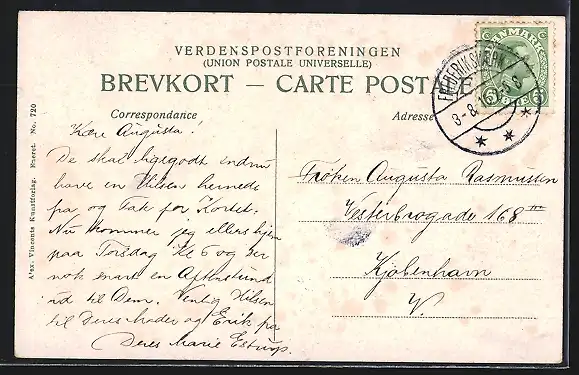 VERDENSPOSTFORENINGEN
(UNION POSTALE UNIVERSELLE)
BREVKORT — CARTE POSTALE
DANMARK
5 ØRE 5
FREDERIKSVÆRK
3-8-16
Correspondance
Adresse
Kære Augusta!
De skal ligegodt endnu
have en Hilsen hernede
fra og Tak for Kortet.
Nu kommer jeg ellers hjem
paa Torsdag Kl 6 og ser
nok snart en Aftenstund
ud til Dem. Venlig Hilsen
til Deres Moder og Erik fra
Deres Marie Estrup.
Frøken Augusta Rasmussen
Vesterbrogade 168 III
Kjøbenhavn
V.
Alex. Vincents Kunstforlag. Eneret. No. 720